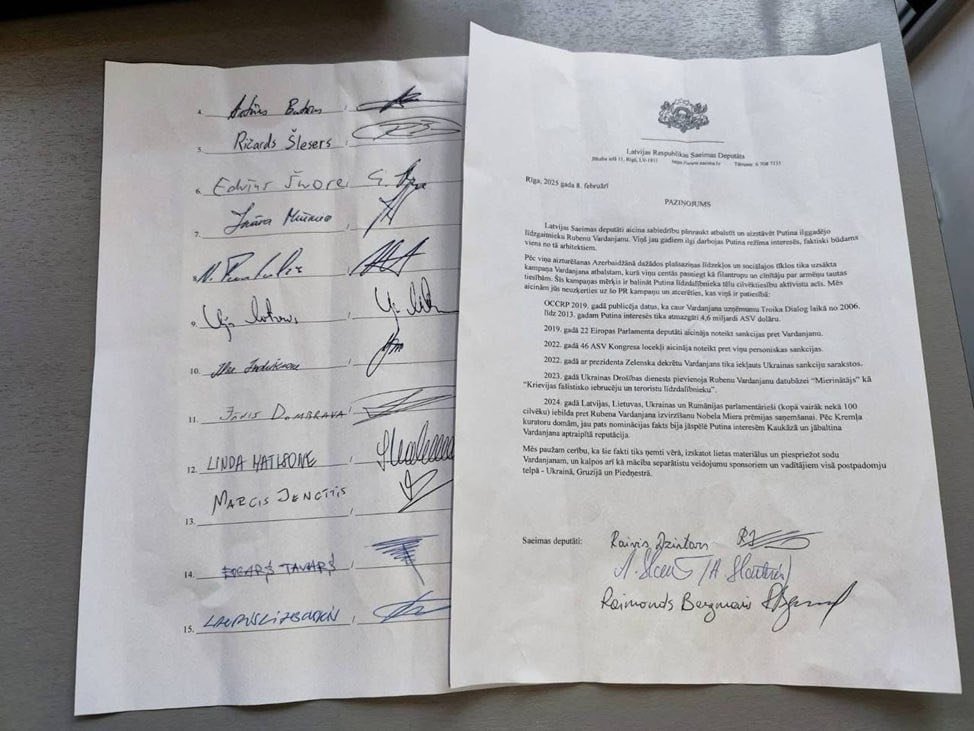 Latvijas Raspublikas Saeimas Deputāts
Jēkaba ielā 11, Rīgā, LV-1811 https://www.saeima.lv Tālrunis: 6 708 7333
Rīga, 2025 gada 8. februārī
PAZIŅOJUMS
Latvijas Saeimas deputāti aicina sabiedrību pārtraukt atbalstīt un aizstāvēt Putina ilggadējo
līdzgaitnieku Rubenu Vardanjanu. Viņš jau gadiem ilgi darbojas Putina režīma interesēs, faktiski būdams
viens no tā arhitektiem.
Pēc viņa aizturēšanas Azerbaidžānā dažādos plašsaziņas līdzekļos un sociālajos tīklos tika uzsākta
kampaņa Vardanjana atbalstam, kurā viņu centās pasniegt kā filantropu un cīnītāju par armēņu tautas
tiesībām. Šīs kampaņas mērķis ir balināt Putina līdzdalībnieka tēlu cilvēktiesību aktīvistu acīs. Mēs
aicinām jūs neuzķerties uz šo PR kampaņu un atcerēties, kas viņš ir patiesībā:
OCCRP 2019. gadā publicēja datus, ka caur Vardanjana uzņēmumu Troika Dialog laikā no 2006.
līdz 2013. gadam Putina interesēs tika atmazgāti 4,6 miljardi ASV dolāru.
2019. gadā 22 Eiropas Parlamenta deputāti aicināja noteikt sankcijas pret Vardanjanu.
2022. gadā 46 ASV Kongresa locekļi aicināja noteikt pret viņu personiskas sankcijas.
2022. gadā ar prezidenta Zelenska dekrētu Vardanjans tika iekļauts Ukrainas sankciju sarakstos.
2023. gadā Ukrainas Drošības dienests pievienoja Rubenu Vardanjanu datubāzei “Mierinātājs” kā
“Krievijas fašistisko iebrucēju un teroristu līdzdalībnieku”.
2024. gadā Latvijas, Lietuvas, Ukrainas un Rumānijas parlamentārieši (kopā vairāk nekā 100
cilvēku) iebilda pret Rubena Vardanjana izvirzīšanu Nobela Miera prēmijas saņemšanai. Pēc Kremļa
kuratoru domām, jau pats nominācijas fakts bija jāspēlē Putina interesēm Kaukāzā un jābaltina
Vardanjana aptraipītā reputācija.
Mēs paužam cerību, ka šie fakti tiks ņemti vērā, izskatot lietas materiālus un piespriežot sodu
Vardanjanam, un kalpos arī kā mācība separātistu veidojumu sponsoriem un vadītājiem visā postpadomju
telpā - Ukrainā, Gruzijā un Piedņestrā.
Saeimas deputāti: Rainis Dzintars
Raimonds Bergmanis
4. Artūrs Butāns
5. Ričards Šlesers
6. Edvīns Šnore
7.
8.
9.
10.
11. Jānis Dombrava
12. LINDA MATISONE
13. MARCIS JENCĪTIS
14. EDGARS TAVARS
15.